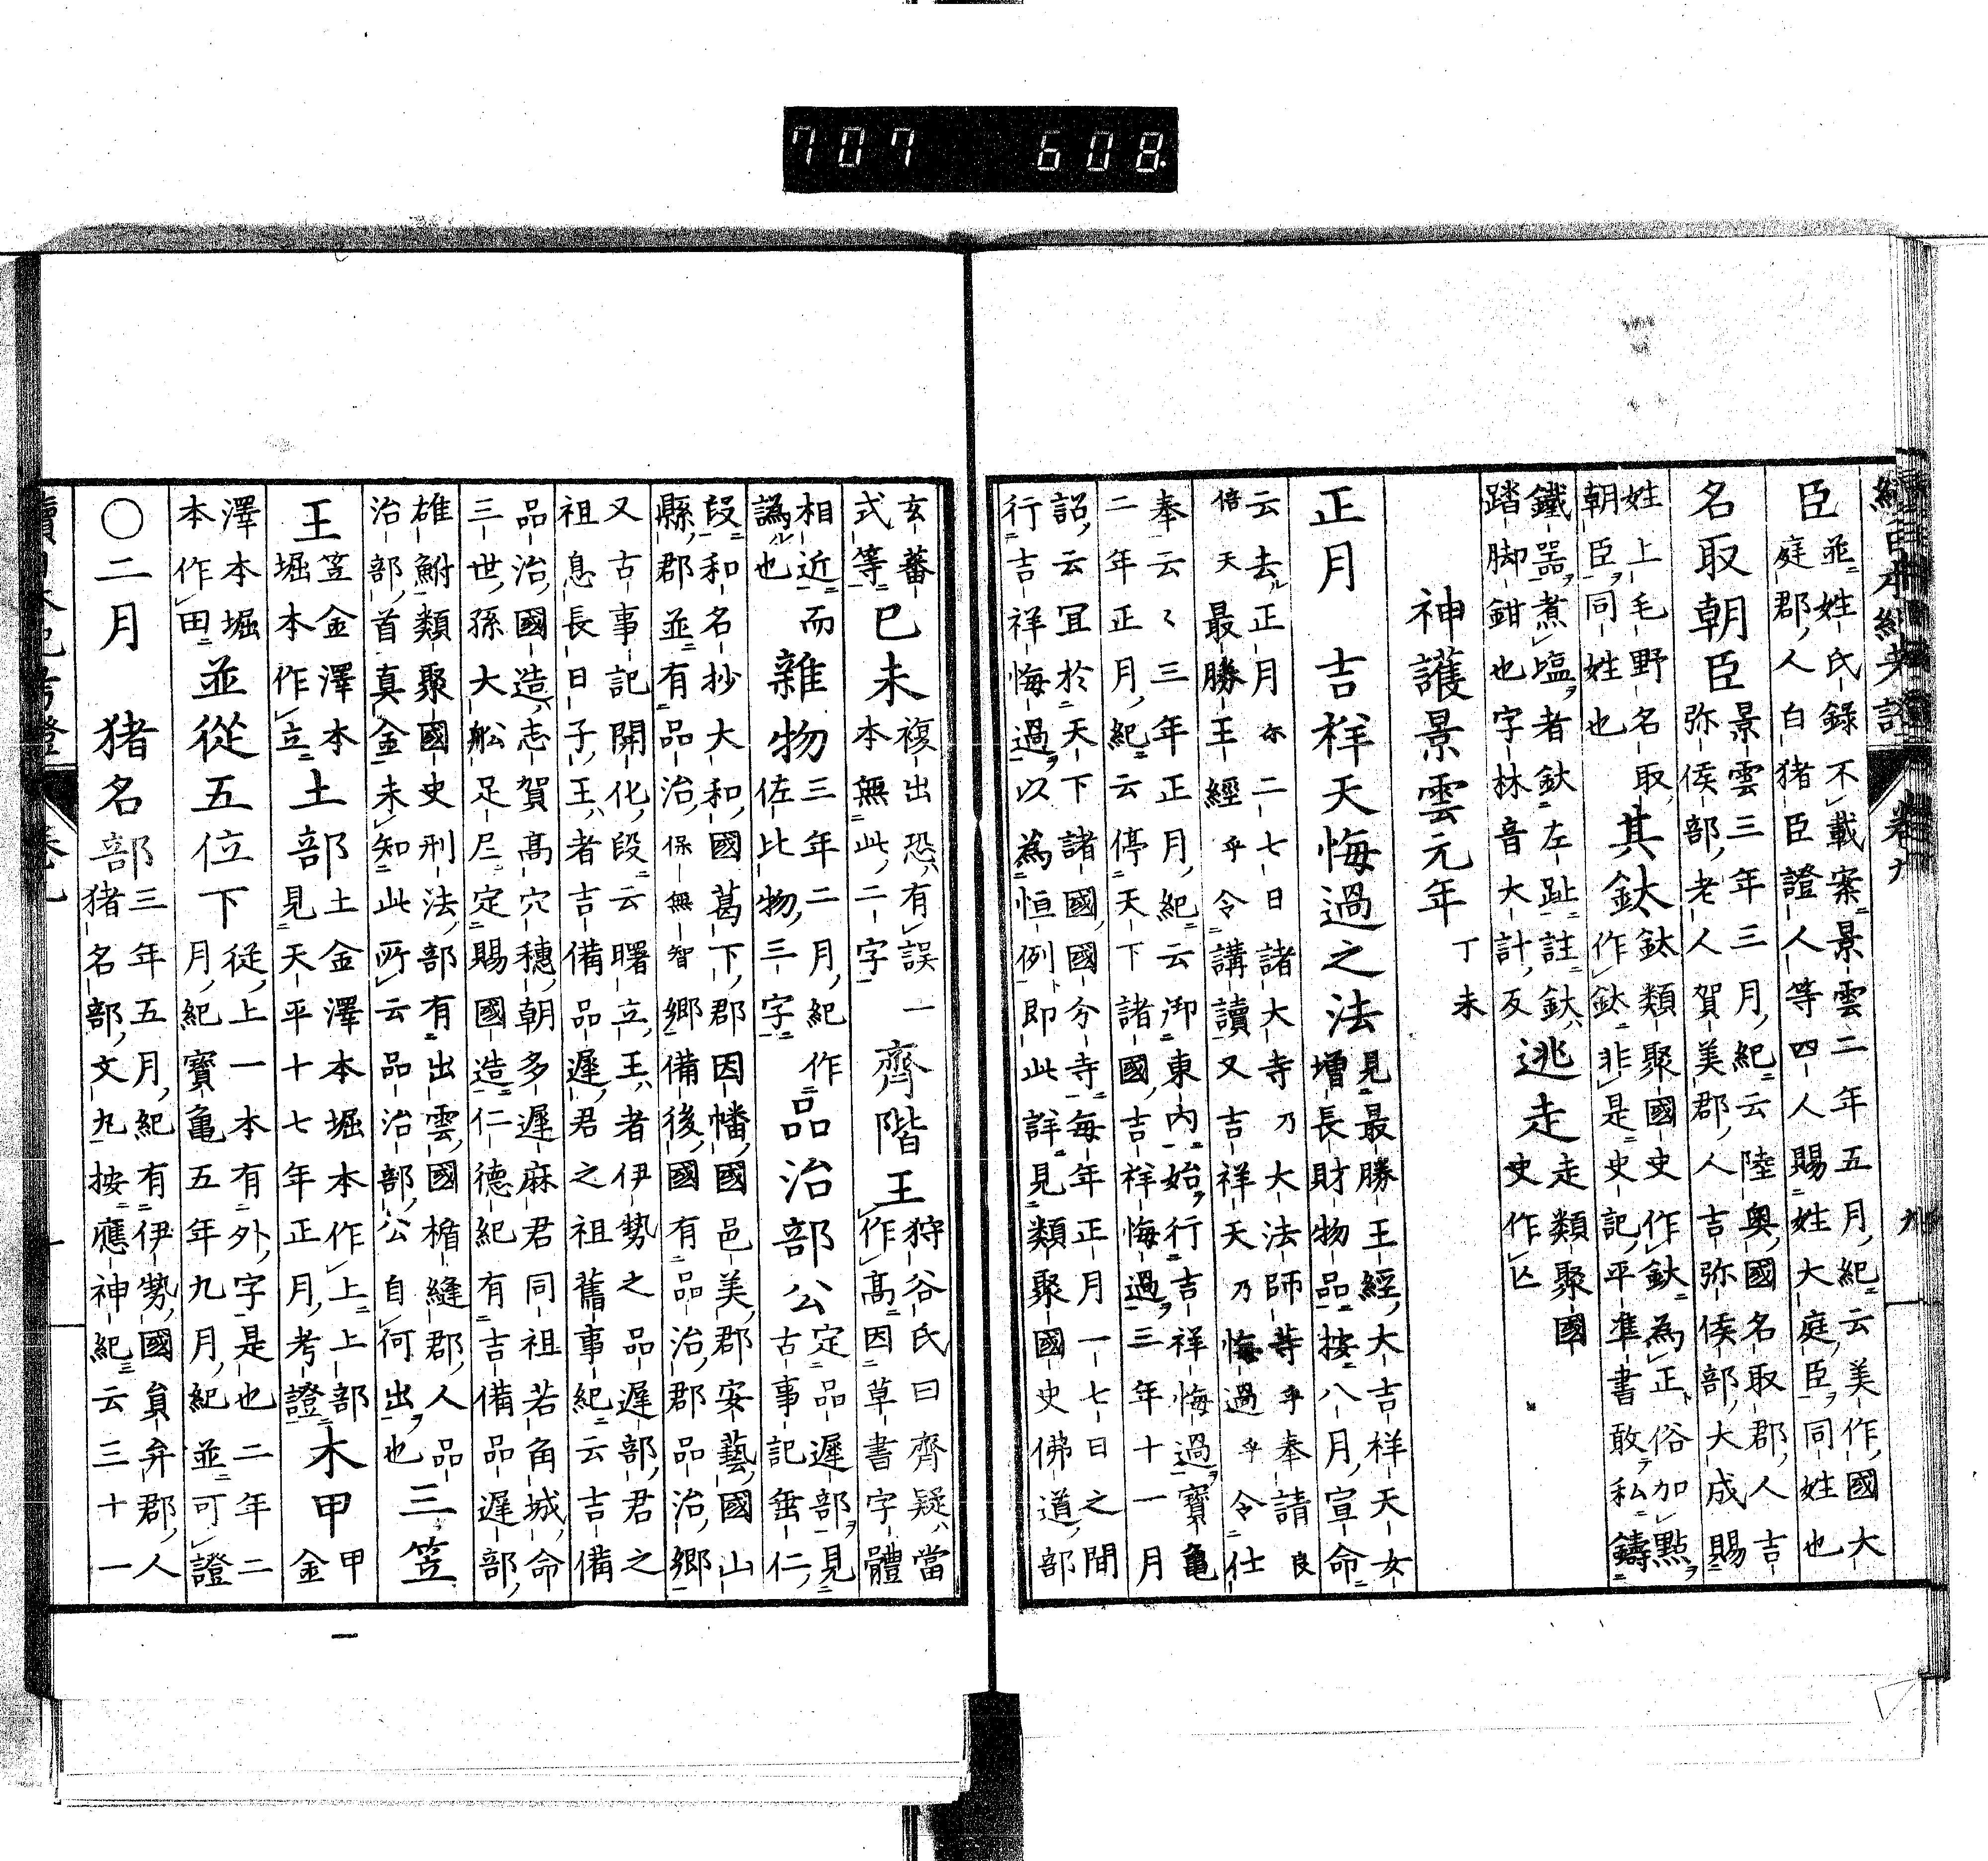 707 608
續日本紀考證 卷九 九
臣 並姓氏錄不載案景雲二年五月紀云美作國大
庭郡人白猪臣證人等四人賜姓大庭臣同姓也
名取朝臣 景雲三年三月紀云陸奧國名取郡人吉
弥侯部老人賀美郡人吉弥侯部大成賜
姓上毛野名取
朝臣同姓也 其釱 釱類聚國史作釱為正俗加點
作釱非是史記平準書敢私鑄
鐵器煮塩者釱左趾註釱
踏脚鉗也字林音大計反 逃走 走類聚國
史作亾
神護景雲元年 丁未
正月 吉祥天悔過之法 見最勝王經大吉祥天女
增長財物品按八月宣命
云去正月尓二七日諸大寺乃大法師等乎奉請良
倍天最勝王經乎令講讀又吉祥天乃悔過乎令仕
奉云々三年正月紀云御東内始行吉祥悔過寶亀
二年正月紀云停天下諸國吉祥悔過三年十一月
詔云宜於天下諸國國分寺每年正月一七日之間
行吉祥悔過以為恒例即此詳見類聚國史佛道部
玄蕃
式等 已未 複出恐有誤一
本無此二字 齊階王 狩谷氏曰齊疑當
作高因草書字體
相近而
譌也 雜物 三年二月紀作
佐比物三字 品治部公 定品遲部見
古事記垂仁
段和名抄大和國葛下郡因幡國邑美郡安藝國山
縣郡並有品治保無智鄉備後國有品治郡品治鄉
又古事記開化段云曙立王者伊勢之品遲部君之
祖息長日子王者吉備品遲君之祖舊事紀云吉備
品治國造志賀高穴穗朝多遲麻君同祖若角城命
三世孫大舩足尼定賜國造仁德紀有吉備品遲部
雄鮒類聚國史刑法部有出雲國楯縫郡人品
治部首真金未知此所云品治部公自何出也 三笠
王 笠金澤本
堀本作立 土部 土金澤本堀本作上上部
見天平十七年正月考證 木甲 甲
金
澤本堀
本作田 並從五位下 從上一本有外字是也二年二
月紀寶亀五年九月紀並可證
○二月 猪名部 三年五月紀有伊勢國員弁郡人
猪名部文九按應神紀云三十一
續日本紀考證 卷九 一
一